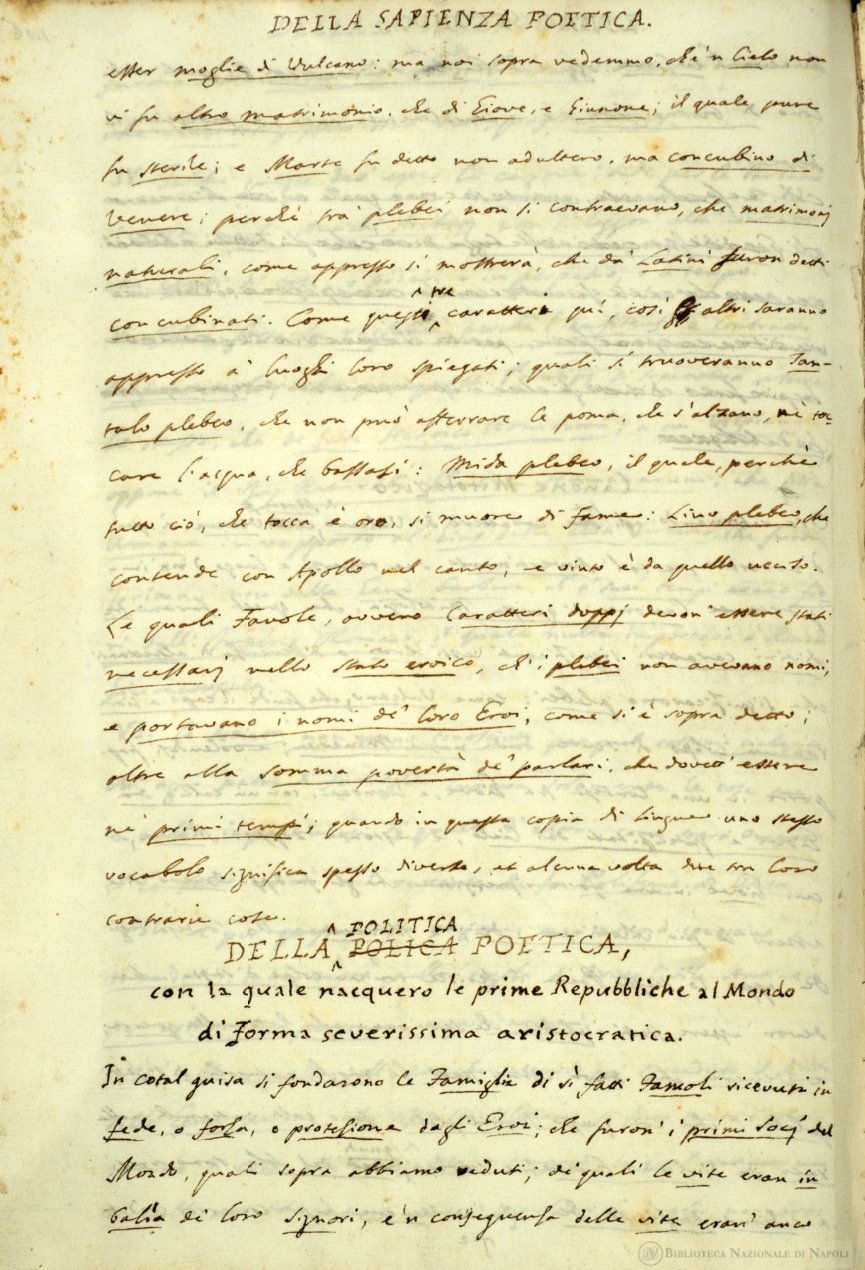 DELLA SAPIENZA POETICA.
esser moglie di Vulcano: ma noi sopra vedemmo, che 'n Cielo non
vi fu altro matrimonio, che di Giove, e Giunone; il quale pure
fu sterile; e Marte fu detto non adultero, ma concubino di
Venere; perchè tra' plebei non si contraevano, che matrimonj
naturali, come appresso si mostrerà, che da' Latini furon detti
concubinati. Come questi tre caratteri qui, così altri saranno
appresso a' luoghi loro spiegati; quali si truoveranno Tan-
talo plebeo, che non può afferrare le poma, che s'alzano, nè toc-
care l'acqua, che bassasi: Mida plebeo, il quale, perchè
tutto ciò, che tocca è oro, si muore di fame: Lino plebeo, che
contende con Apollo nel canto, e vinto è da quello ucciso.
Le quali Favole, ovvero Caratteri doppj devon' essere stati
necessarj nello Stato eroico, ch'i plebei non avevano nomi,
e portavano i nomi de' loro Eroi, come si è sopra detto;
oltre alla somma povertà de' parlari, che dovett' essere
ne' primi tempi; quando in questa copia di lingue uno stesso
vocabolo significa spesso diverse, et alcuna volta due tra loro
contrarie cose.
DELLA POLITICA POLICA POETICA,
con la quale nacquero le prime Repubbliche al Mondo
di forma severissima aristocratica.
In cotal guisa si fondarono le Famiglie di sì fatti Famoli ricevuti in
fede, o forza, o protezione dagli Eroi; che furon' i primi Socj del
Mondo, quali sopra abbiamo veduti; de' quali le vite eran in
balìa de' loro Signori, e 'n conseguenza delle vite eran' anco
BIBLIOTECA NAZIONALE DI NAPOLI